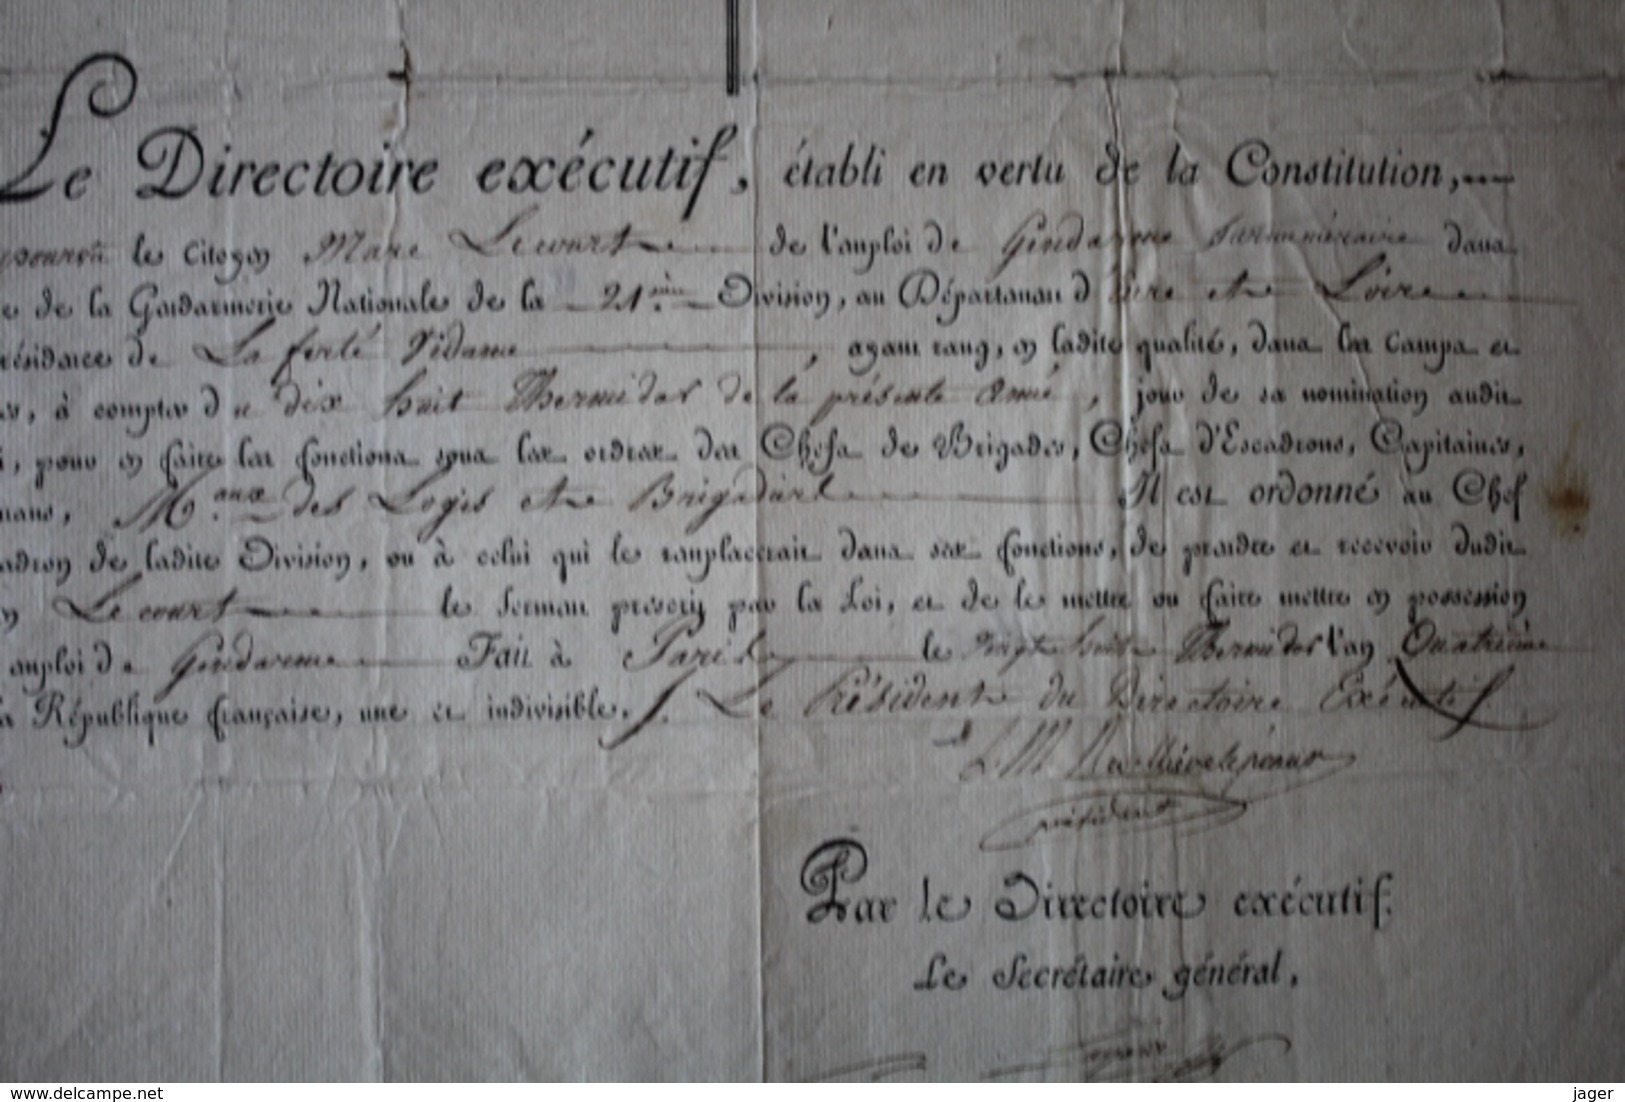 Le Directoire exécutif, établi en vertu de la Constitution,
pourvu le Citoyen Marc Lecourt de l'emploi de Gendarme Surnuméraire dans
e de la Gendarmerie Nationale de la 21.me Division, au Département d'Eure et Loire
résidence de La ferté Vidame, ayant rang, en ladite qualité, dans les Camps et
es, à compter du dix huit Thermidor de la présente année, jour de sa nomination audit
i, pour en faire les fonctions sous les ordres des Chefs de Brigades, Chefs d'Escadrons, Capitaines,
nans, M.aux des Logis et Brigadiers Il est ordonné au Chef
adron de ladite Division, ou à celui qui le remplacerait dans ses fonctions, de prendre et recevoir dudit
n Le court le serment prescrit par la Loi, et de le mettre ou faire mettre en possession
emploi de Gendarme Fait à Paris le vingt huit Thermidor l'an Quatrième
a République française, une et indivisible. Le Président du Directoire Exécutif
L M Revellierelepeaux
président
Par le Directoire exécutif.
Le Secrétaire général,
www.delcampe.net
jager